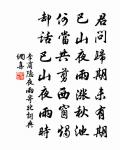 君問歸期未有期
巴山夜雨漲秋池
何當共剪西窗燭
却話巴山夜雨時
李商隱夜雨寄北詞典
網喜